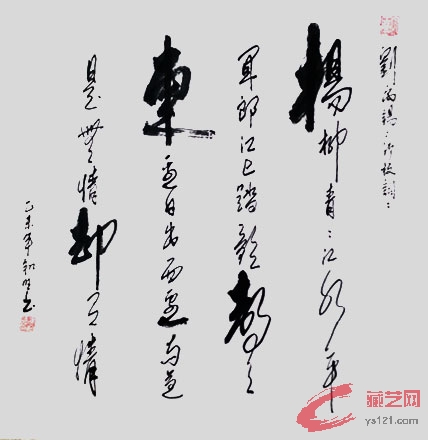 劉禹錫竹枝詞
楊柳青〻江水平
聞郎江上踏歌聲
東邊日出西邊雨道
是無情却有情
乙未年
藏艺网
ys121.com